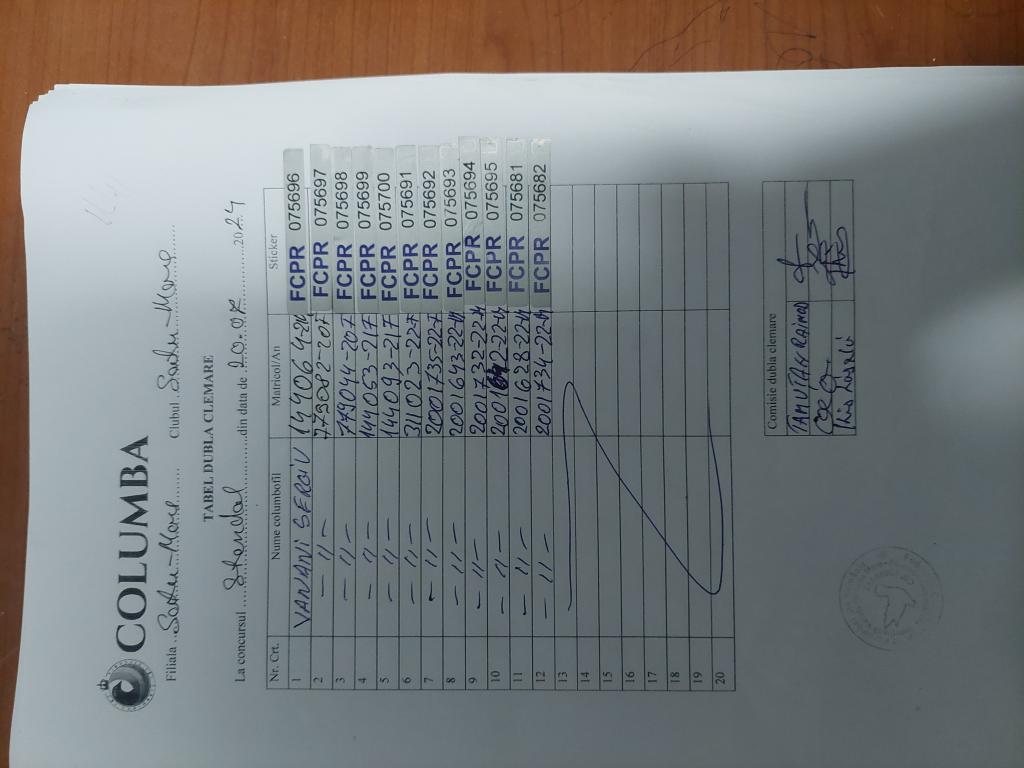 COLUMBA
Filiala Satu-Mare Clubul Satu-Mare
TABEL DUBLA CLEMARE
La concursul Stendal din data de 20.07 2024
Nr. Crt. Nume columbofil Matricol/An Sticker
1 VANVANI SERGIU FCPR 075696
2 -11- 773082-207 FCPR 075697
3 -11- 779044-207 FCPR 075698
4 -11- 144063-217 FCPR 075699
5 -11- 144093-217 FCPR 075700
6 -11- 311023-227 FCPR 075691
7 -11- 2001735-227 FCPR 075692
8 -11- 2001643-22-M FCPR 075693
9 -11- 2001732-22-M FCPR 075694
10 -11- FCPR 075695
11 -11- 2001628-22-M FCPR 075681
12 -11- 2001734-22-M FCPR 075682
13
14
15
16
17
18
19
20
Comisie dubla clemare